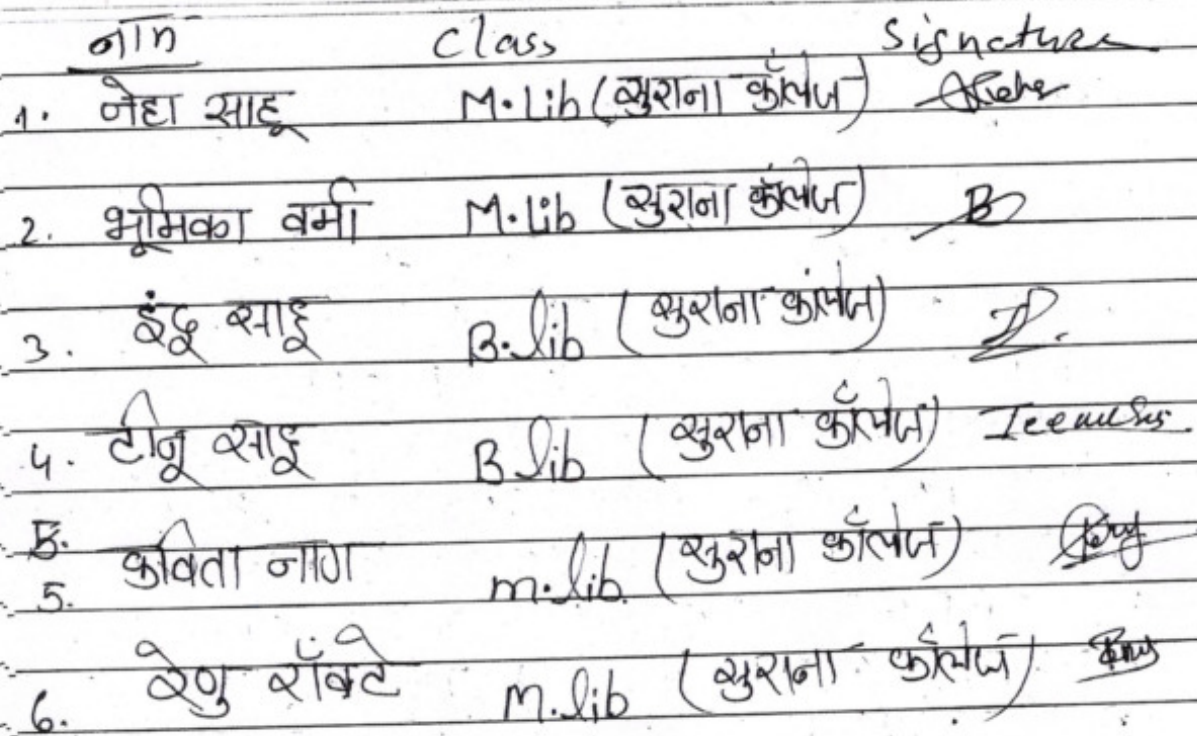 नाम Class Signature
1. नेहा साहू M.Lib (सुराना कॉलेज) Neha
2. भूमिका वर्मा M.Lib (सुराना कॉलेज) B
3. इंदू साहू B.lib (सुराना कॉलेज)
4. टीनू साहू B lib (सुराना कॉलेज)
5.
5. कविता नाग m.lib. (सुराना कॉलेज)
6. रेणु M.lib (सुराना कॉलेज)